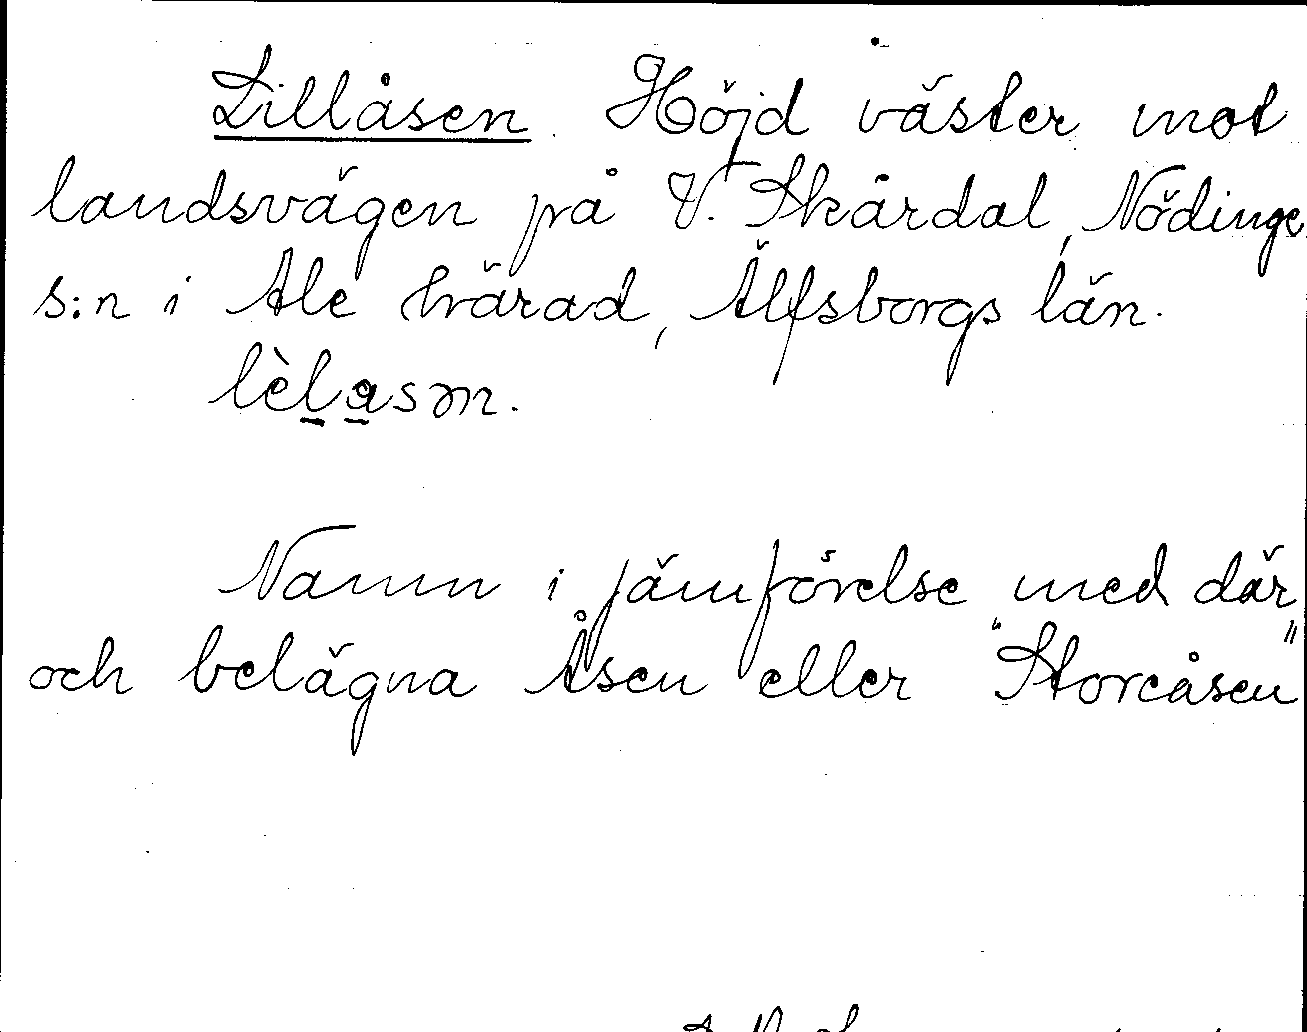 Lillåsen. Höjd väster mot
landsvägen på V. Skårdal, Nödinge
s:n i Ale härad, Älfsborgs län.
lèlasən.
Namn i jämförelse med där
och belägna Åsen eller "Storeåsen"